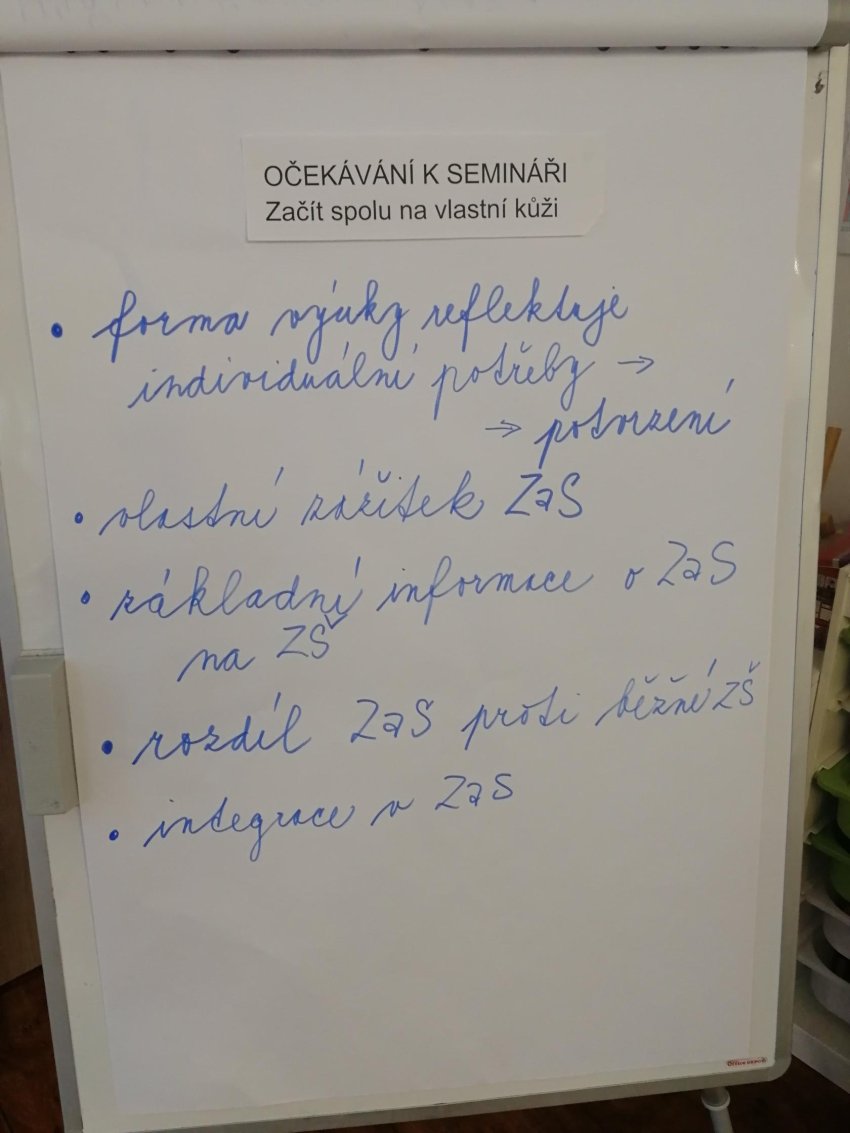 OČEKÁVÁNÍ K SEMINÁŘI
Začít spolu na vlastní kůži
• forma výuky reflektuje
individuální potřeby →
→ potvrzení
• vlastní zážitek ZaS
• základní informace o ZaS
na ZŠ
• rozdíl ZaS proti běžné ZŠ
• integrace v ZaS